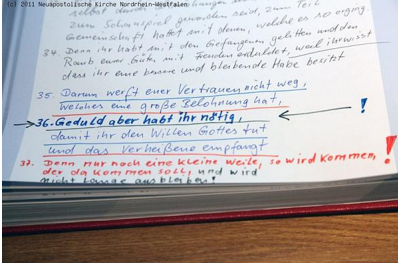 (c) 2011 Neuapostolische Kirche Nordrhein-Westfalen
selbst durch
zum Schauspiel geworden seid, zum Teil
Gemeinschaft hattet mit denen, welche es so erging
34. Denn ihr habt mit den Gefangenen gelitten und den
Raub eurer Güter mit Freuden erduldet, weil ihr wisst
dass ihr eine bessere und bleibende Habe besitzt
35. Darum werft euer Vertrauen nicht weg,
welches eine große Belohnung hat,
36. Geduld aber habt ihr nötig, !
damit ihr den Willen Gottes tut
und das Verheißene empfangt
37. Denn nur noch eine kleine Weile, so wird kommen, !
der da kommen soll, und wird
nicht lange ausbleiben!